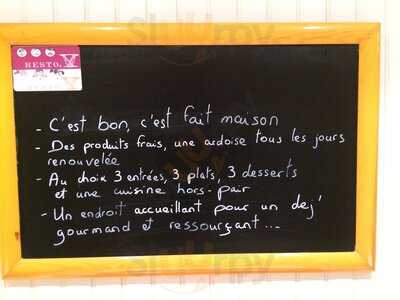 RESTO.
- C'est bon, c'est fait maison
- Des produits frais, une ardoise tous les jours
renouvelée
- Au choix 3 entrées, 3 plats, 3 desserts
et une cuisine hors-pair
- Un endroit accueillant pour un dej'
gourmand et ressourçant...